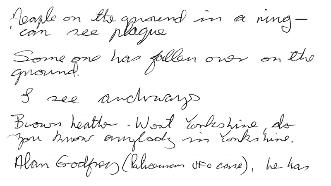 People on the ground in a ring –
can see plague
Some one has fallen over on the
ground.
I see archways
Brown heather. Wont Yorkshire do
you know anybody in Yorkshire.
Alan Godfrey (Policeman UFO case), he has